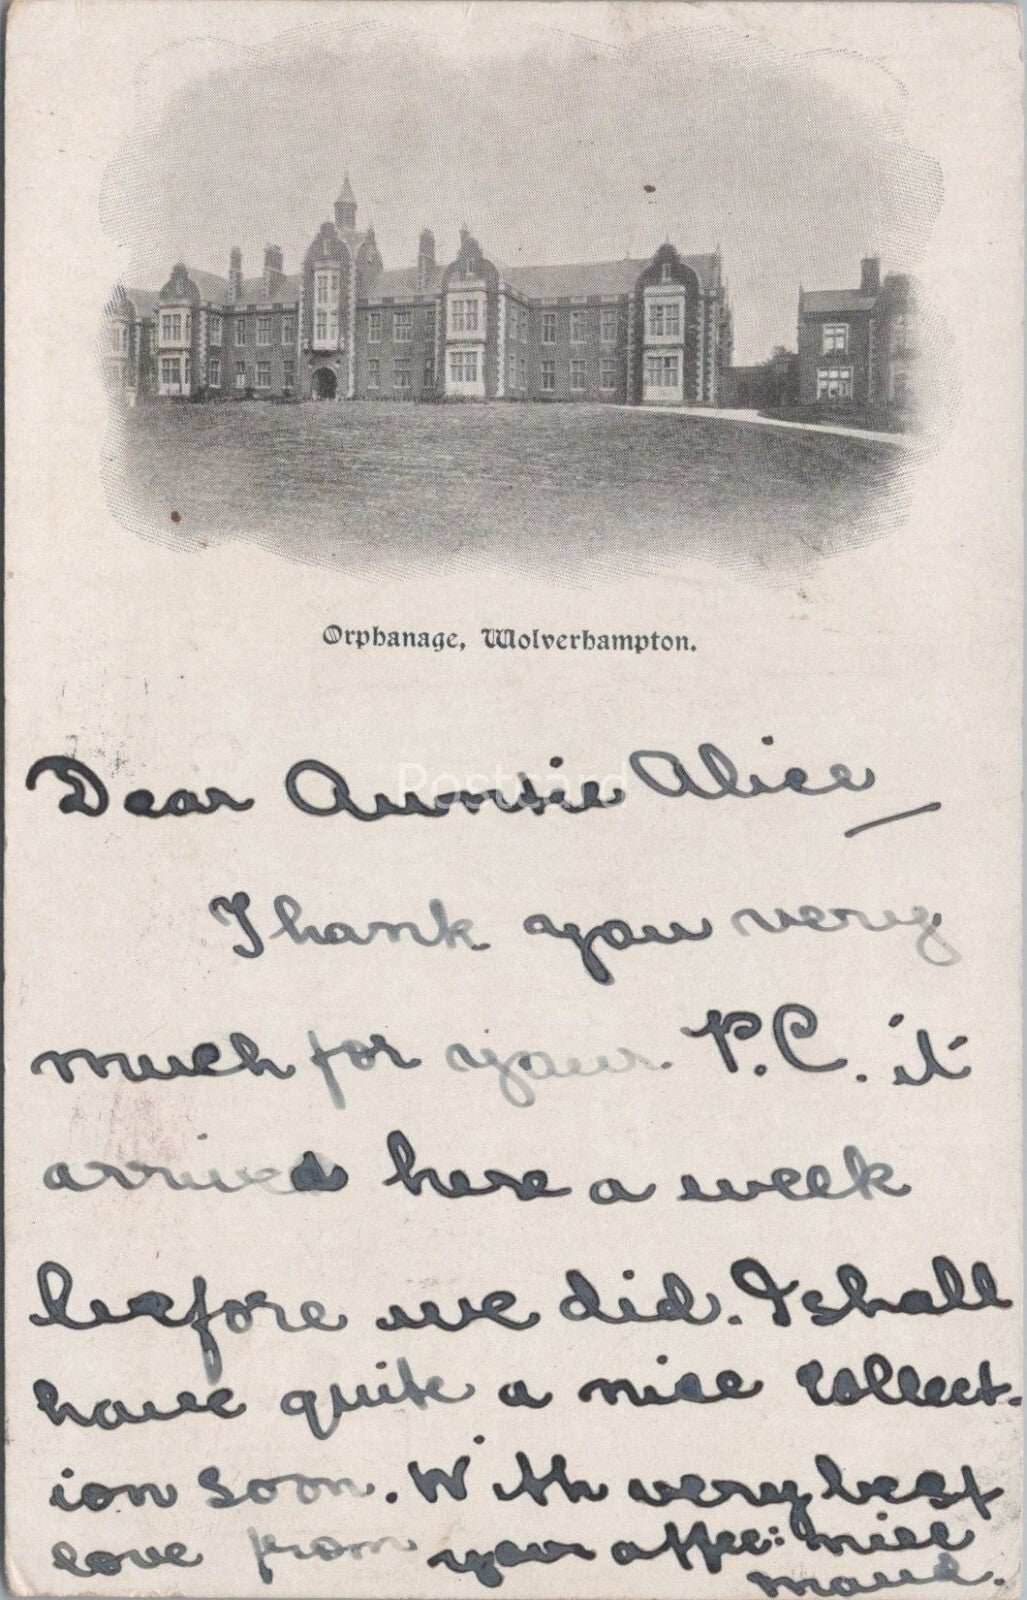 Orphanage, Wolverhampton.
Postcard
Dear Auntie Alice
Thank you very
much for your P.C. it
arrived here a week
before we did. I shall
have quite a nice collect-
ion soon. With very best
love from your affec: niece
Maud.